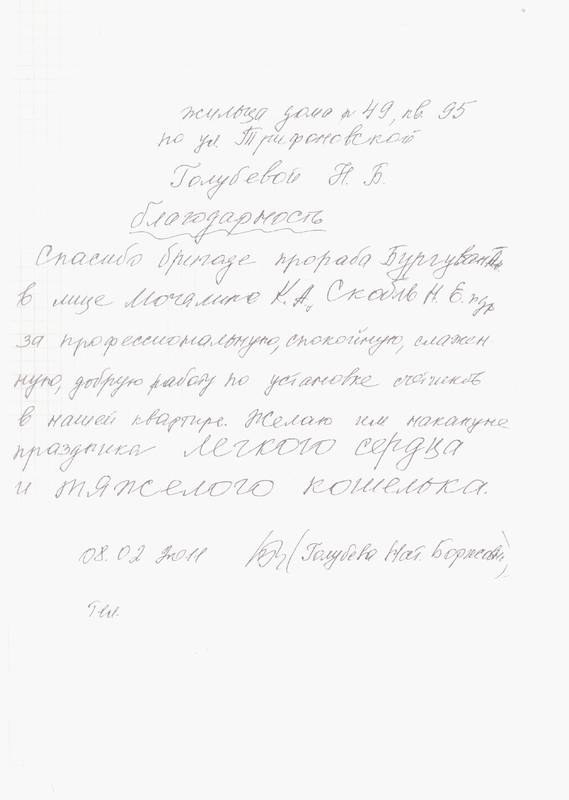 жильца дома n 49, кв. 95
по ул. Трифоновской
Голубевой Н. Б.
благодарность
Спасибо бригаде прораба
в лице К.А, Н. Е. и др
за профессиональную, спокойную, слажен
ную, добрую работу по установке счётчиков
в нашей квартире. Желаю им накануне
праздника легкого сердца
и тяжелого кошелька.
08.02 2011 (Голубева Нат. Борисовн)
Тел.